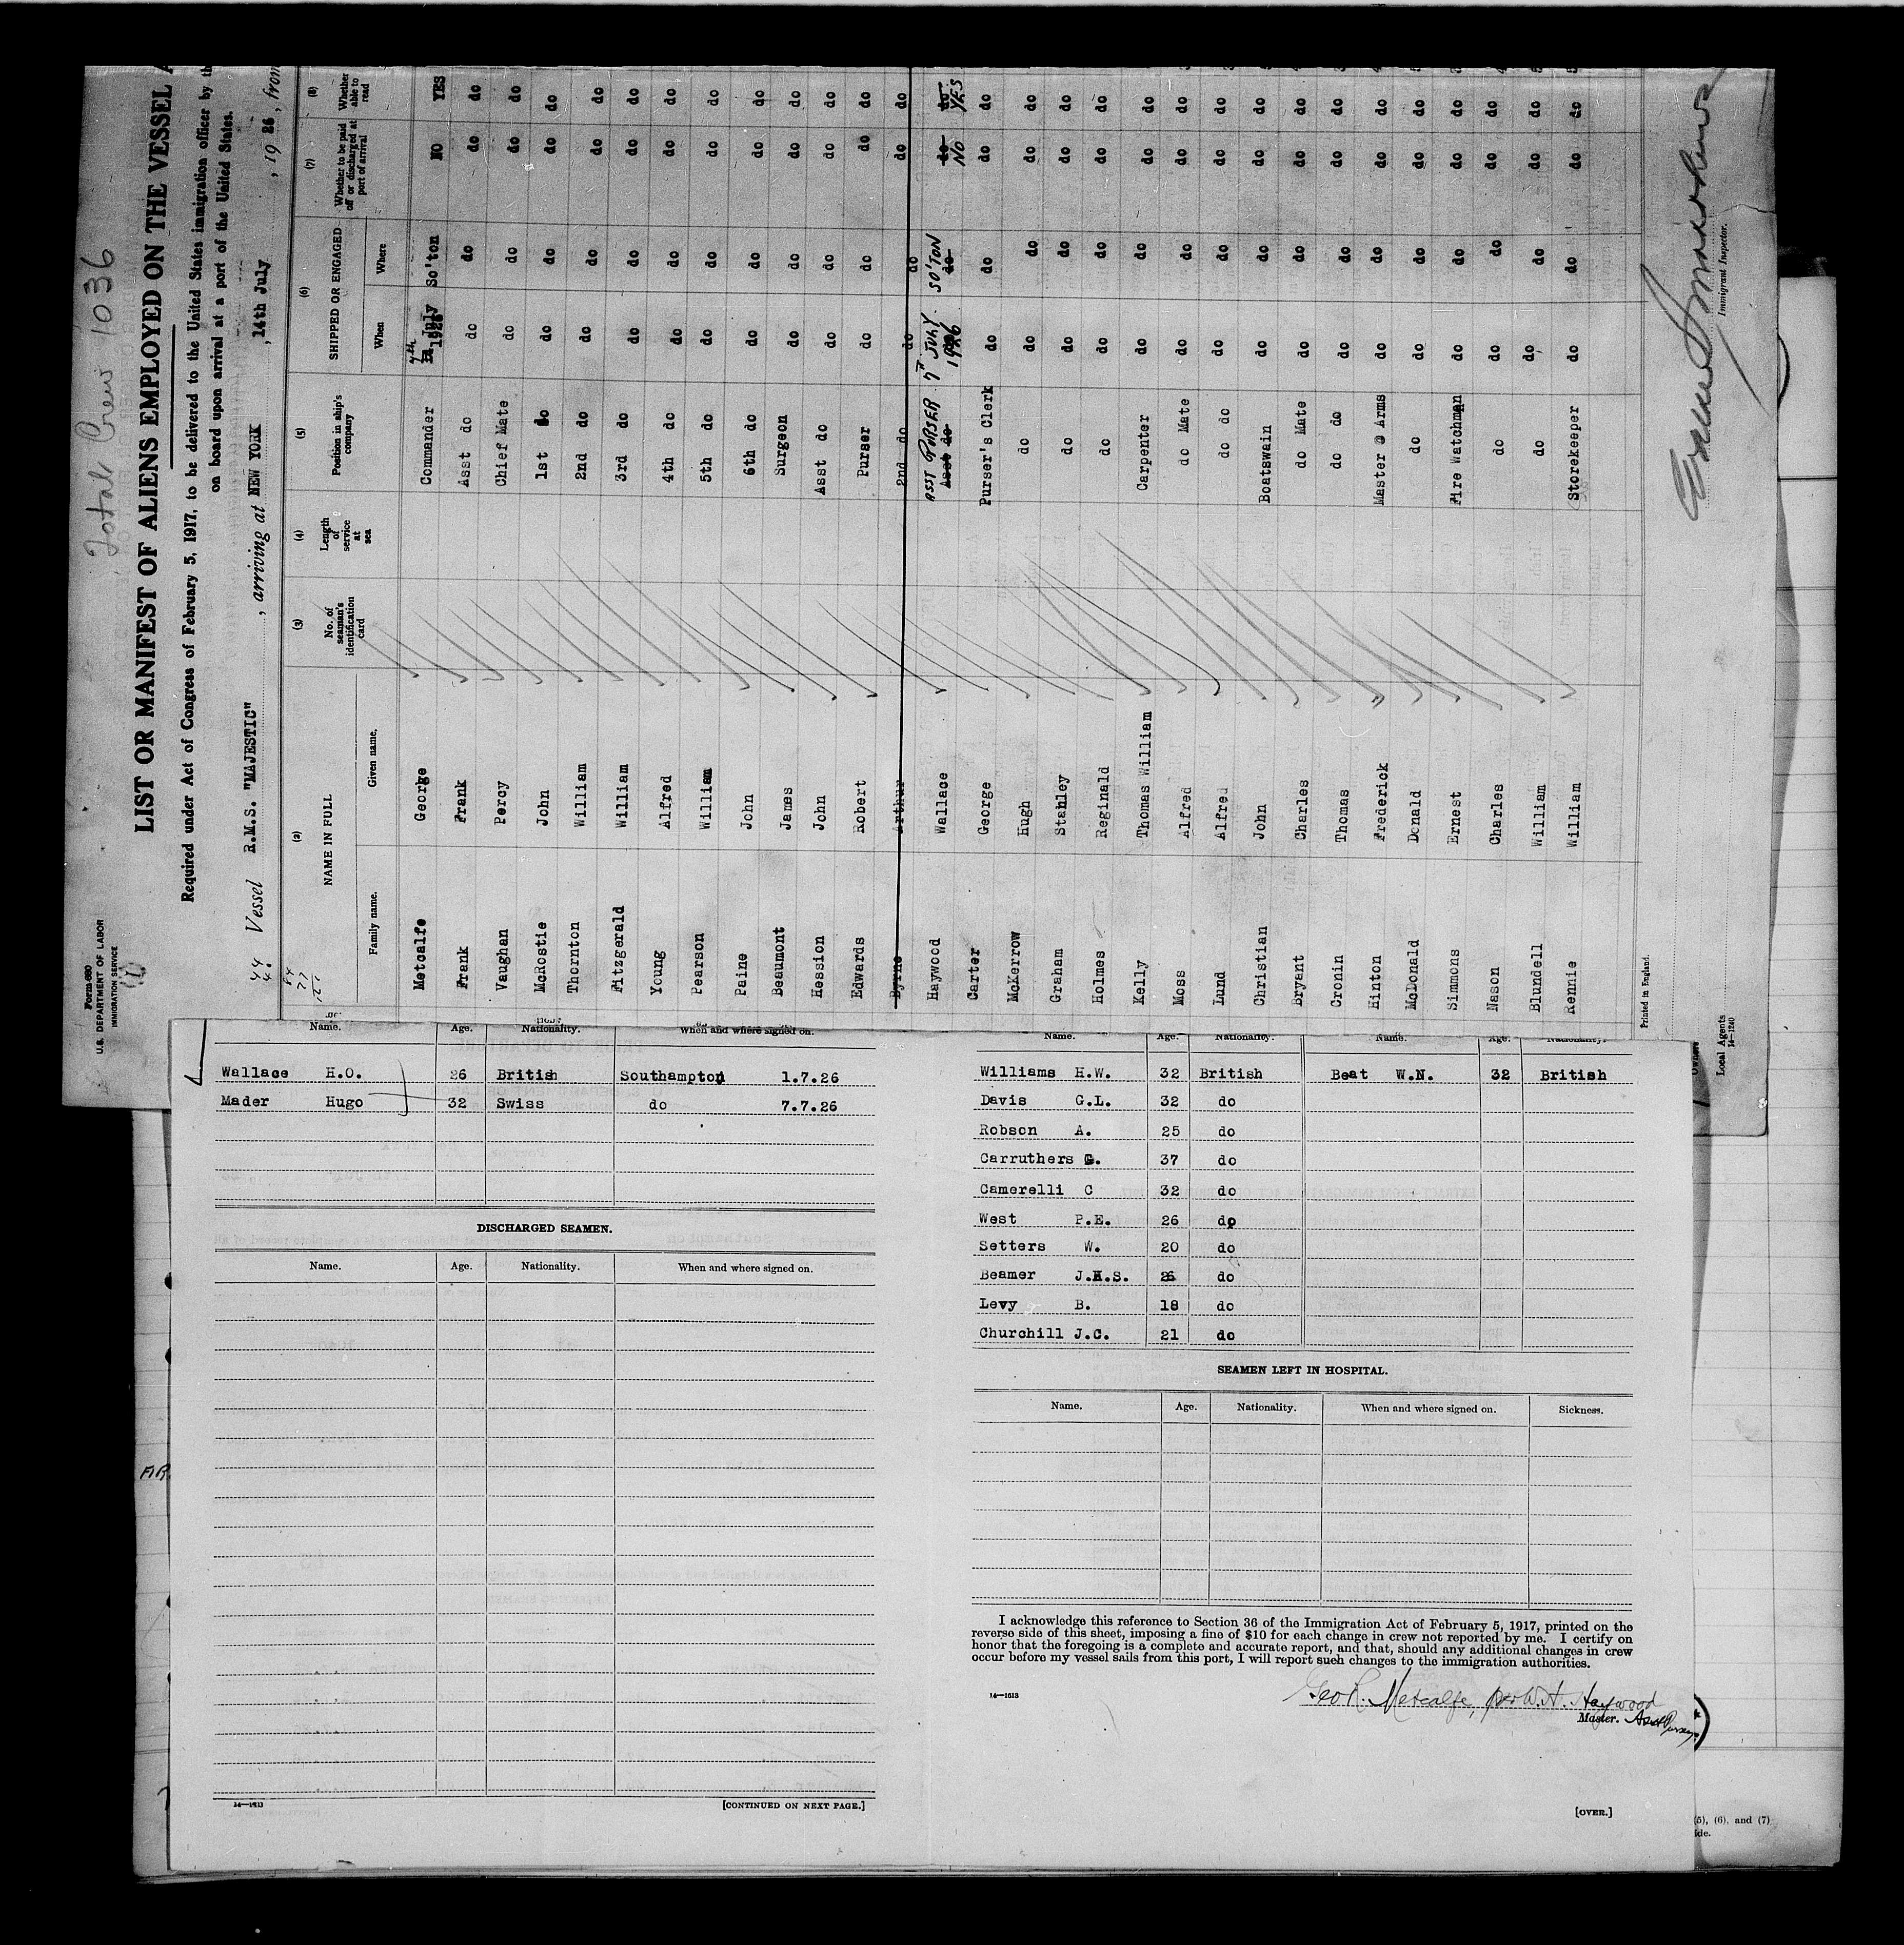 Total Crew 1036
Form 680
U.S. DEPARTMENT OF LABOR
IMMIGRATION SERVICE
LIST OR MANIFEST OF ALIENS EMPLOYED ON THE VESSEL A
Required under Act of Congress of February 5, 1917, to be delivered to the United States immigration officer by th
on board upon arrival at a port of the United States.
Vessel R.M.S. "MAJESTIC", arriving at NEW YORK, 14th July, 19 26, from
(2) (3) (4) (5) (6) (7) (8)
NAME IN FULL No. of seaman's identification card Length of service at sea Position in ship's company SHIPPED OR ENGAGED Whether to be paid off or discharged at port of arrival Whether able to read
Family name. Given name. When Where
Metcalfe George Commander 7th July 1926 So'ton NO YES
Frank Frank Asst do do do do do
Vaughan Percy Chief Mate do do do do
McRostie John 1st do do do do do
Thornton William 2nd do do do do do
Fitzgerald William 3rd do do do do do
Young Alfred 4th do do do do do
Pearson William 5th do do do do do
Paine John 6th do do do do do
Beaumont James Surgeon do do do do
Hession John Asst do do do do do
Edwards Robert Purser do do do do
Byrne Arthur 2nd do do do do do
Haywood Wallace ASST PURSER 7th JULY 1926 SO'TON NO YES
Asst do do do do
Carter George Purser's Clerk do do do do
McKerrow Hugh do do do do do
Graham Stanley do do do do do
Holmes Reginald do do do do do
Kelly Thomas William Carpenter do do do do
Moss Alfred do Mate do do do do
Lund Alfred do do do do do do
Christian John Boatswain do do do do
Bryant Charles do Mate do do do do
Cronin Thomas do do do do do do
Hinton Frederick Master @ Arms do do do do
McDonald Donald do do do do do
Simmons Ernest Fire Watchman do do do do
Mason Charles do do do do do
Blundell William do do do do do
Rennie William Storekeeper do do do do
Printed in England.
Immigrant Inspector.
Local Agents
14—1240
Name. Age. Nationality. When and where signed on.
Wallace H.O. 26 British Southampton 1.7.26
Mader Hugo 32 Swiss do 7.7.26
DISCHARGED SEAMEN.
Name. Age. Nationality. When and where signed on.
14—1613
[CONTINUED ON NEXT PAGE.]
Name. Age. Nationality. Name. Age. Nationality.
Williams H.W. 32 British Beat W.N. 32 British
Davis G.L. 32 do
Robson A. 25 do
Carruthers G. 37 do
Camerelli C 32 do
West P.E. 26 do
Setters W. 20 do
Beamer J.H.S. 26 do
Levy B. 18 do
Churchill J.C. 21 do
SEAMEN LEFT IN HOSPITAL.
Name. Age. Nationality. When and where signed on. Sickness.
I acknowledge this reference to Section 36 of the Immigration Act of February 5, 1917, printed on the
reverse side of this sheet, imposing a fine of $10 for each change in crew not reported by me. I certify on
honor that the foregoing is a complete and accurate report, and that, should any additional changes in crew
occur before my vessel sails from this port, I will report such changes to the immigration authorities.
14—1613
Geo R. Metcalfe, per W.H. Haywood
Master. Asst Purser
[OVER.]
(5), (6), and (7)
ide.